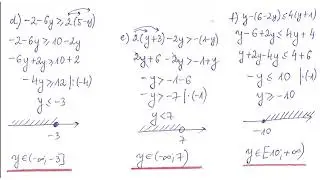 d) -2-6y ≥ 2(5-y)
-2-6y ≥ 10-2y
-6y+2y ≥ 10+2
-4y ≥ 12 |:(-4)
y ≤ -3
-3
y∈(-∞,-3]
e) 2(y+3)-2y>-(1-y)
2y+6-2y>-1+y
-y>-1-6
-y>-7 |·(-1)
y<7
7
y∈(-∞,7)
f) y-(6-2y)≤4(y+1)
y-6+2y≤4y+4
y+2y-4y≤4+6
-y≤10 |·(-1)
y≥-10
-10
y∈[-10,+∞)